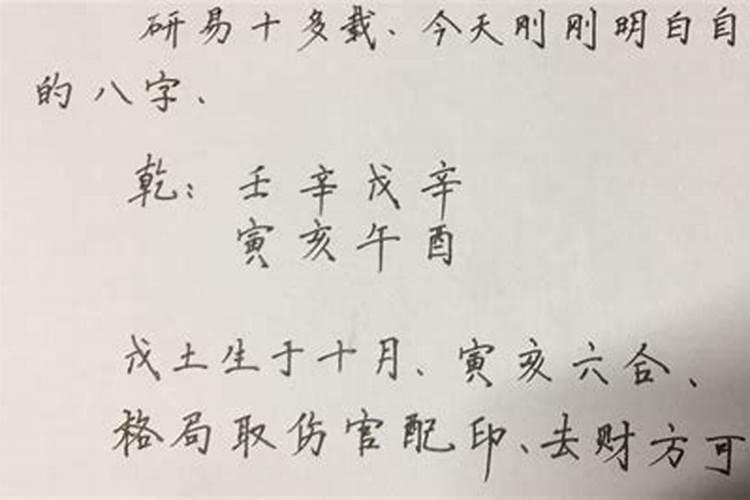 研易十多载、今天刚刚明白自
的八字、
乾：壬辛戊辛
寅亥午酉
戊土生于十月、寅亥六合、
格局取伤官配印、去财方可